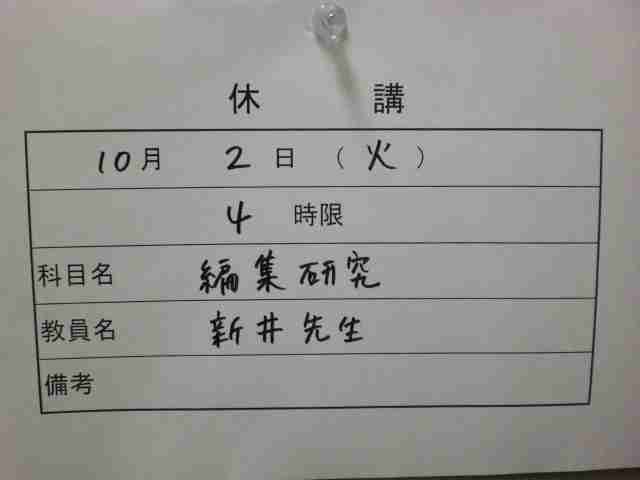 休 講
10月 2日 (火)
4 時限
科目名 編集研究
教員名 新井先生
備考